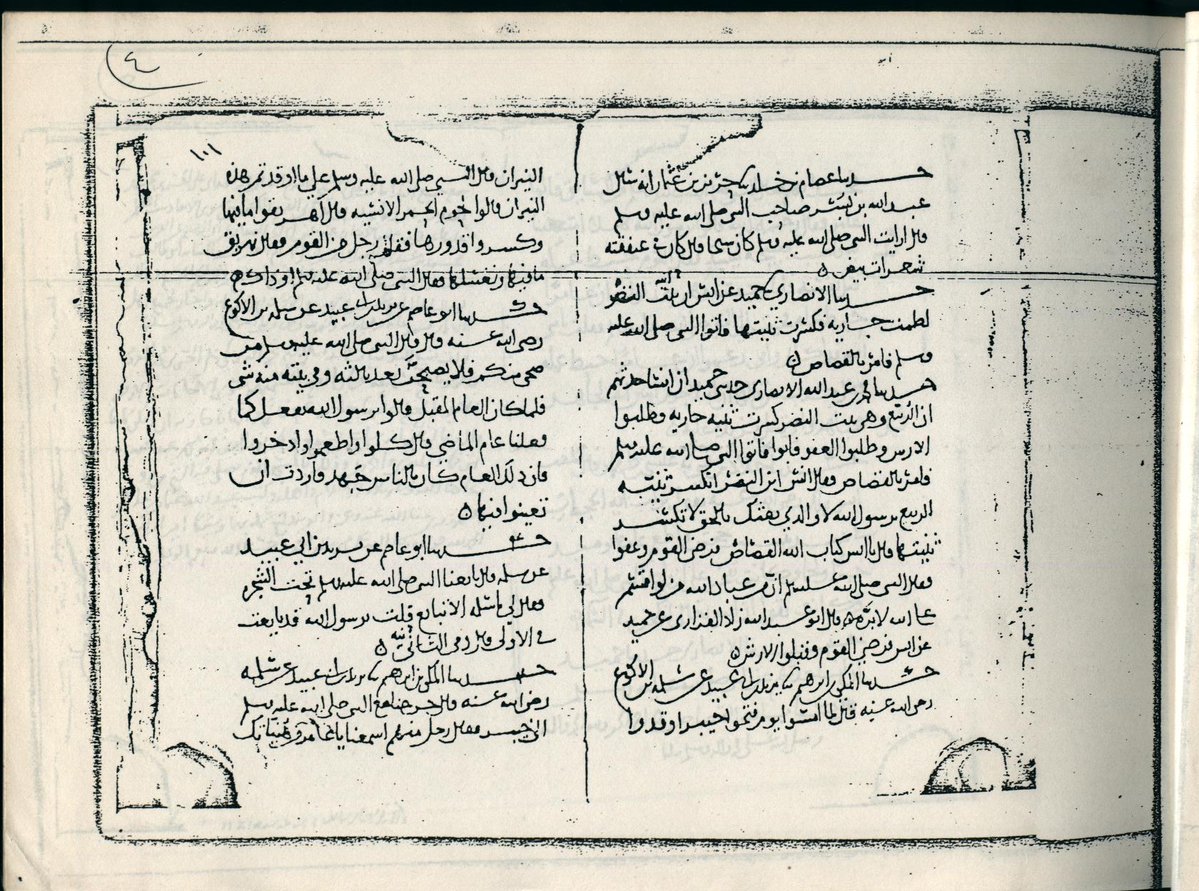 ٤
حدثنا عصام بن خالد نا حريز بن عثمان انه سال
عبد الله بن بسر صاحب النبي صلى الله عليه وسلم
قال ارايت النبي صلى الله عليه وسلم كان شيخا قال كان في عنفقته
شعرات بيض
حدثنا الانصاري نا حميد عن انس ان ابنت النضر
لطمت جاريه فكسرت ثنيتها فاتوا النبي صلى الله عليه
وسلم فامر بالقصاص
حدثنا محمد بن عبد الله الانصاري حدثني حميد ان انسا حدثهم
ان الربيع وهي بنت النضر كسرت ثنيه جاريه وطلبوا
الارش وطلبوا العفو فابوا فاتوا النبي صلى الله عليه وسلم
فامر بالقصاص وقال انس ابن النضر اتكسر ثنيه
الربيع يرسول الله لا والذي بعثك بالحق لا تكسر
ثنيتها قال يا انس كتاب الله القصاص فرضي القوم وعفوا
وقال النبي صلى الله عليه وسلم ان من عباد الله من لو اقسم
على الله لابره قال ابو عبد الله زاد الفزاري عن حميد
عن انس فرضي القوم وقبلوا الارش
حدثنا المكي بن ابرهيم نا يزيد بن ابي عبيد عن سلمه بن الاكوع
رضي الله عنه قال لما امسوا يوم فتحوا خيبر اوقدوا
١٠١
النيران قال النبي صلى الله عليه وسلم على ما اوقدتم هذه
النيران قالوا لحوم الحمر الانسيه قال اهريقوا ما فيها
وكسروا قدورها فقام رجل من القوم فقال نهريق
ما فيها ونغسلها فقال النبي صلى الله عليه وسلم او ذاك
حدثنا ابو عاصم عن يزيد بن ابي عبيد عن سلمه بن الاكوع
رضي الله عنه قال قال النبي صلى الله عليه وسلم من
ضحى منكم فلا يصبحن بعد ثالثه وفي بيته منه شي
فلما كان العام المقبل قالوا يرسول الله نفعل كما
فعلنا عام الماضي قال كلوا واطعموا وادخروا
فان ذلك العام كان بالناس جهد فاردت ان
تعينوا فيها
حدثنا ابو عاصم عن يزيد بن ابي عبيد
عن سلمه قال بايعنا النبي صلى الله عليه وسلم تحت الشجره
وقال لي يا سلمه الا تبايع قلت يرسول الله قد بايعت
في الاولى قال وفي الثانيه
حدثنا المكي بن ابرهيم نا يزيد بن ابي عبيد عن سلمه
رضي الله عنه قال خرجنا مع النبي صلى الله عليه وسلم
الى خيبر فقال رجل منهم اسمعنا يا عامر من هنياتك